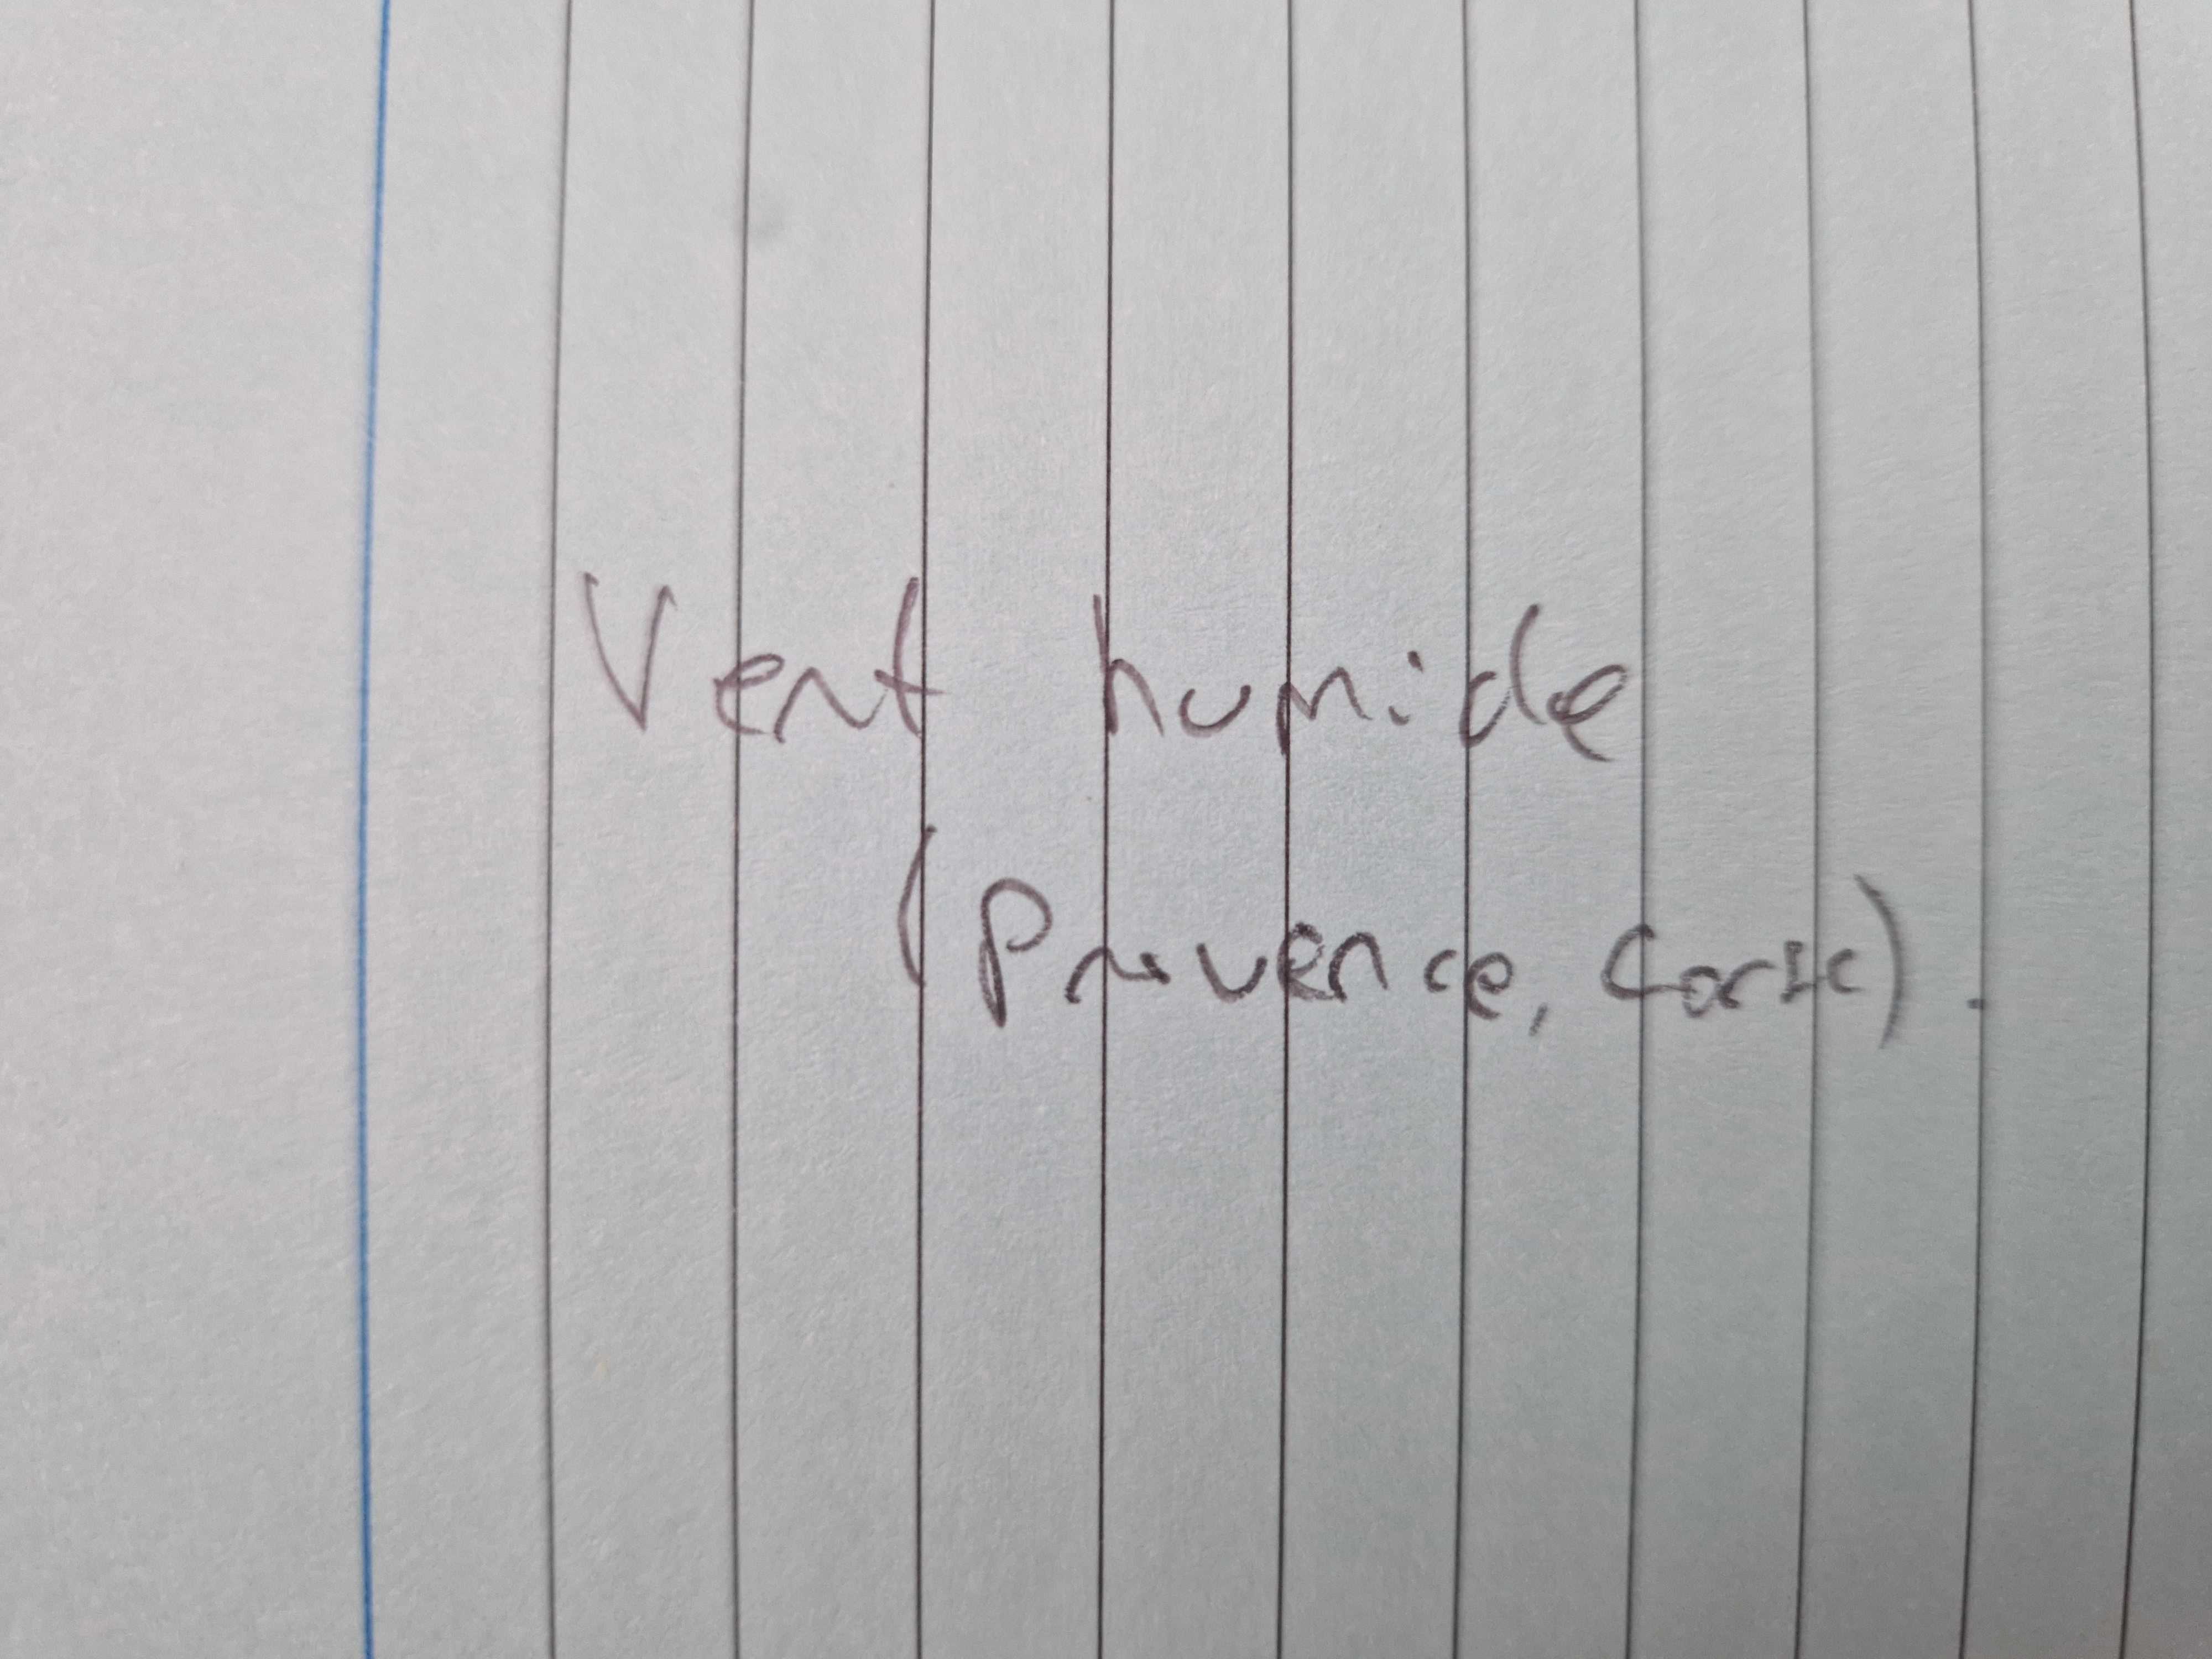 Vent humide
(Provence, Corse).